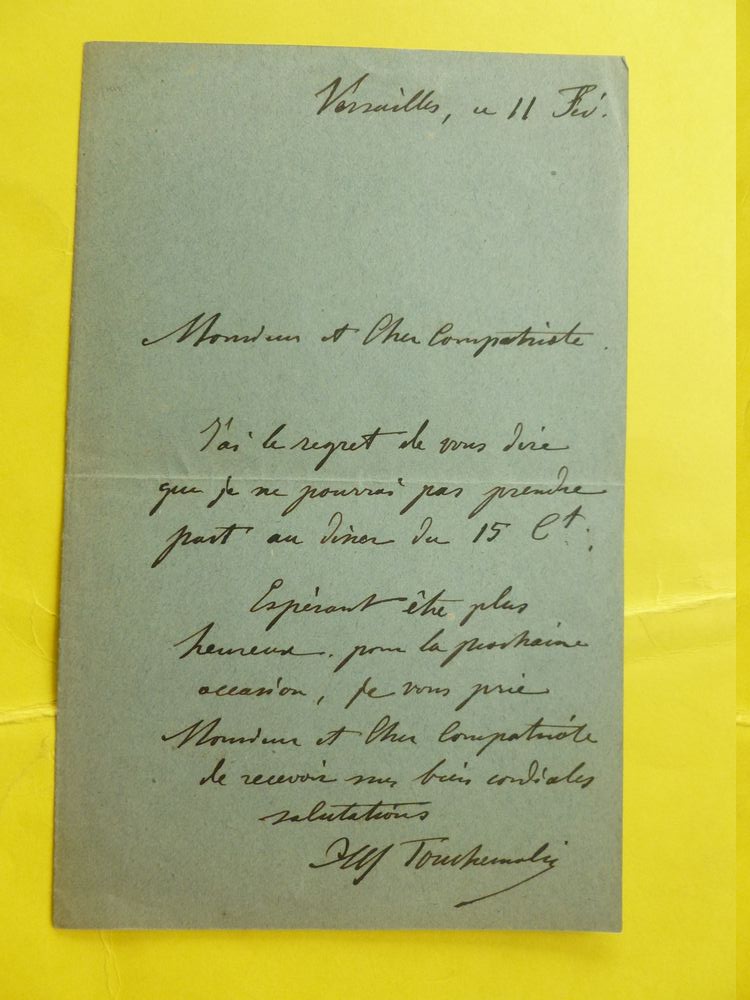 Versailles, ce 11 Fév.
Monsieur et Cher Compatriote
J'ai le regret de vous dire
que je ne pourrai pas prendre
part au diner du 15 Ct.
Espérant être plus
heureux pour la prochaine
occasion, je vous prie
Monsieur et Cher Compatriote
de recevoir mes bien cordiales
salutations
Alf Touchemolin